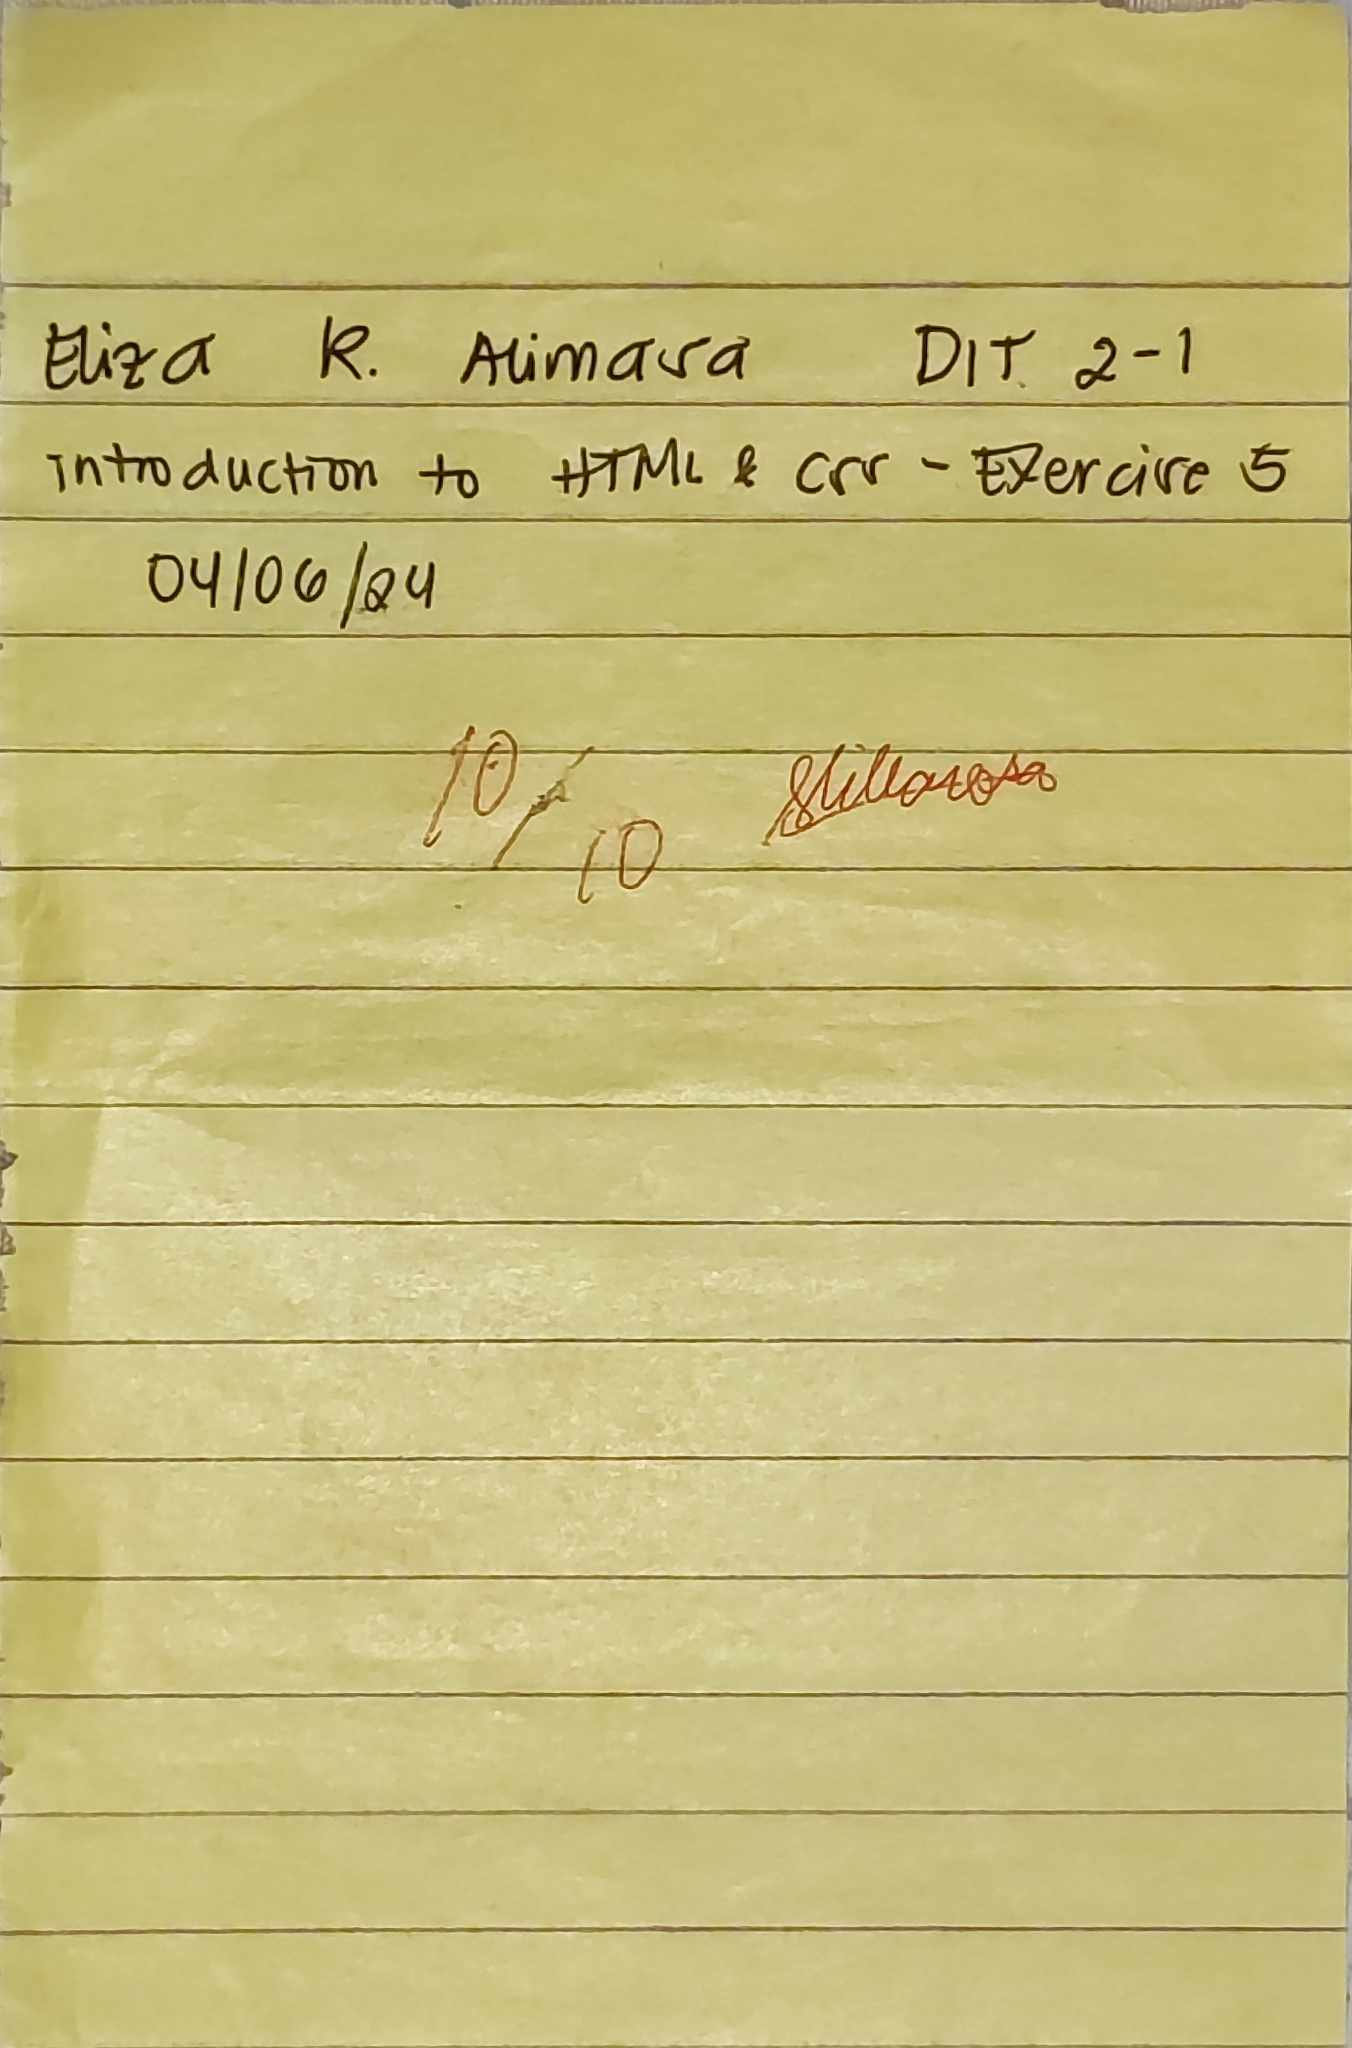 Eliza R. Alimasa DIT 2-1
introduction to HTML & CSS - Exercise 5
04/06/24
10/10